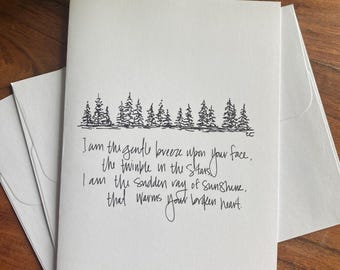 EC
I am the gentle breeze upon your face,
the twinkle in the stars
I am the sudden ray of sunshine,
that warms your broken heart.